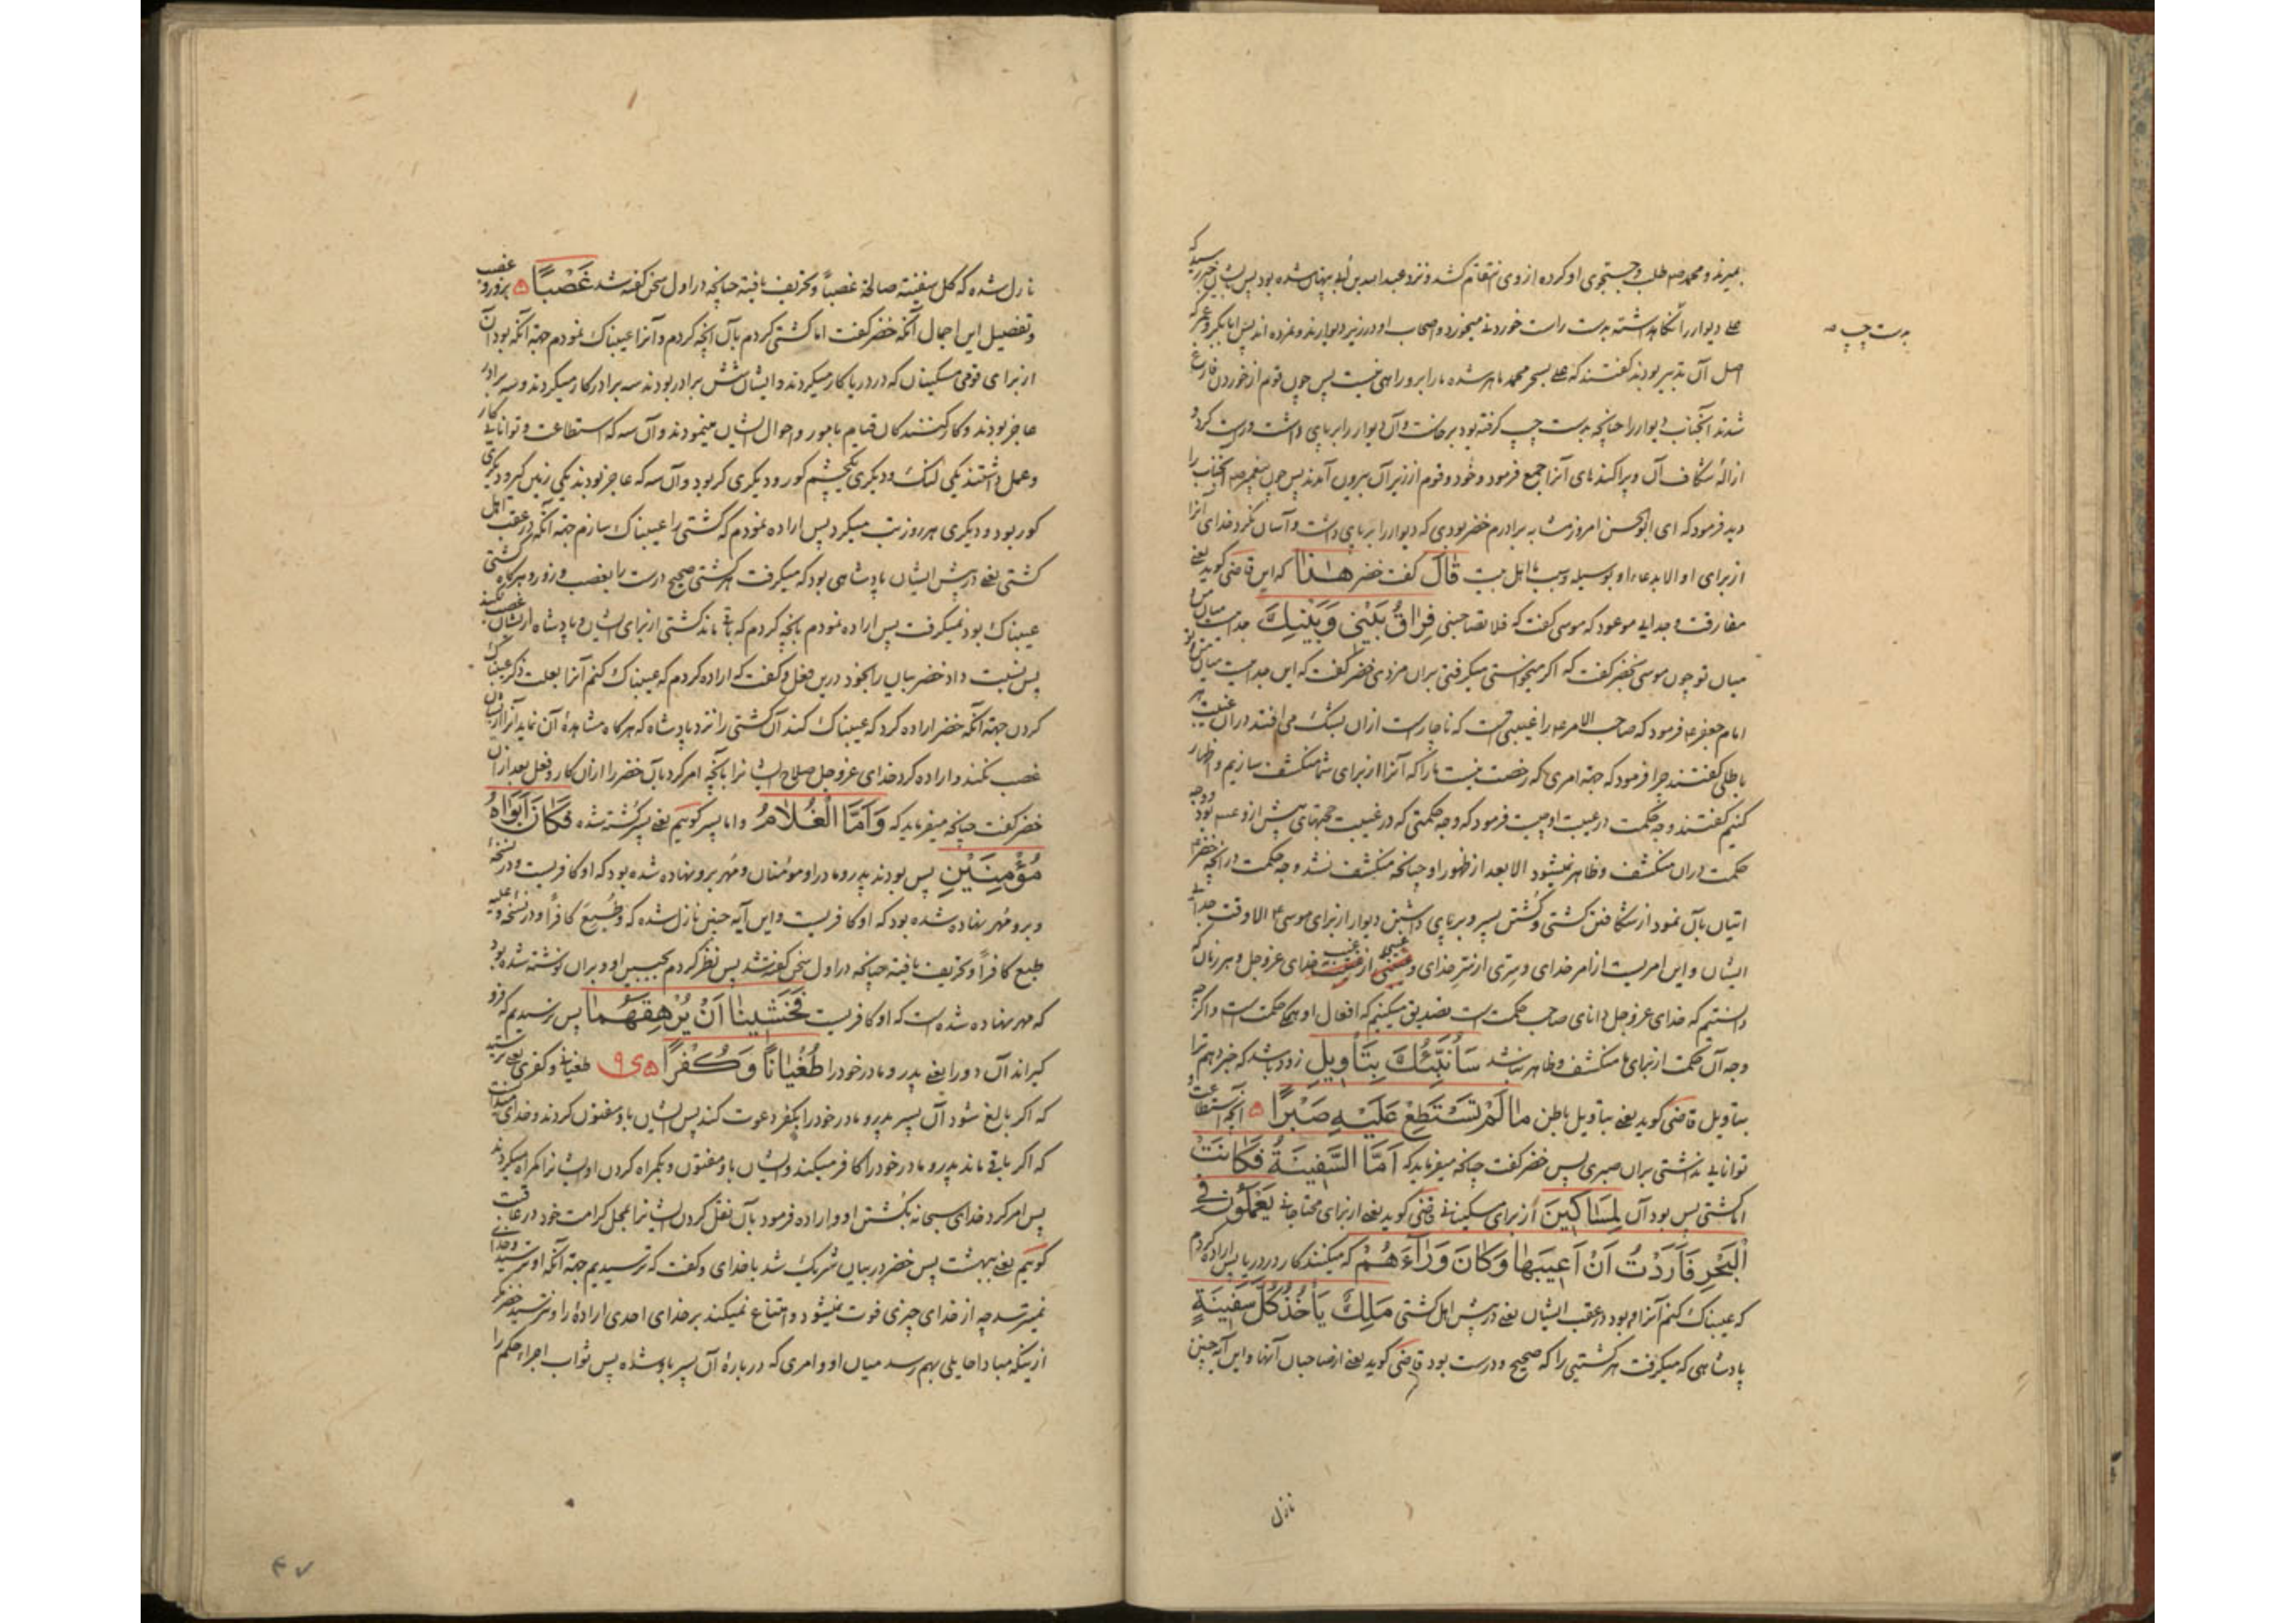 بمیرند و محمد صه طلب و جستجوی او کرده از وی انتقام کشد و نزد عبدالله بن ابی پنهان شده بود پس ایشان خبر رسید که
علی دیوار را نگاه داشته بدست راست خوردنی میخورد و اصحاب او در زیر دیوارند و نمرده اند پس ابابکر و عمر که
بدست چپ صه
اصل آن تدبیر بودند گفتند که علی بسحر محمد ماهر شده ما را برو راهی نیست پس چون قوم از خوردن فارغ
شدند آنجناب دیوار را چنانچه بدست چپ گرفته بود برخاست و آن دیوار را برپای داشت و درست کرد و
ازالهٔ شکاف آن و پراکندهای آنرا جمع فرمود و خود و قوم از زیر آن بیرون آمدند پس چون پیغمبر صه آنجناب را
دید فرمود که ای ابوالحسن امروز مشابه برادرم خضر بودی که دیوار را برپای داشت و آسان نکرد خدای آنرا
از برای او الا بدعاء او بوسیله و سبب ما اهل بیت قَالَ گفت خضر هٰذَا که این قاضی گوید یعنی
مفارقت و جدایی موعود که موسی گفت که فلا تصاحبنی فِرَاقُ بَيْنِي وَبَيْنِكَ جداییست میان من و
میان تو چون موسی بخضر گفت که اگر میخواستی میگرفتی بران مزدی خضر گفت که این جداییست میان من و تو
امام جعفر ع فرمود که صاحب الامر ع را غیبتی است که ناچارست ازان بشک می افتند دران غیبت هر
باطلی گفتند چرا فرمود که جهة امری که رخصت نیست ما را که آنرا از برای شما منکشف سازیم و اظهار
کنیم گفتند وجه حکمت در غیبت او چیست فرمود که وجه حکمتی که در غیبت حجتهای پیش ازو عسه بود وجه
حکمت دران منکشف و ظاهر نمیشود الا بعد از ظهور او چنانچه منکشف نشد وجه حکمت در آنچه خضر ع
اتیان بآن نمود از شکافتن کشتی و کشتن پسر و برپای داشتن دیوار از برای موسی ع الا وقت جدایی
ایشان و این امریست از امر خدای و سرّی از سرّ خدای و غیبی از غیب خدای عز و جل و هر زمان که
دانستیم که خدای عز و جل دانای صاحب حکمت است تصدیق میکنیم که افعال او همه حکمت است و اگر چه
وجه آن حکمت از برای ما منکشف و ظاهر نباشد سَأُنَبِّئُكَ بِتَأْوِيلِ زود باشد که خبر دهم ترا
بتاویل قاضی گوید یعنی بتاویل باطن مَا لَمْ تَسْتَطِعْ عَلَيْهِ صَبْرًا آنچه استطاعت و
توانایی نداشتی بران صبری پس خضر گفت چنانچه میفرماید که أَمَّا السَّفِينَةُ فَكَانَتْ
اما کشتی پس بود آن لِمَسَاكِينَ از برای مسکینانی قاضی گوید یعنی از برای محتاجانی يَعْمَلُونَ فِي
الْبَحْرِ فَأَرَدْتُ أَنْ أَعِيبَهَا وَكَانَ وَرَاءَهُمْ که میکنند کار در دریا پس اراده کردم
که عیبناک کنم آنرا و بود در عقب ایشان یعنی در پیش اهل کشتی مَلِكٌ يَأْخُذُ كُلَّ سَفِينَةٍ
پادشاهی که میگرفت هر کشتیی را که صحیح و درست بود قاضی گوید یعنی از صاحبان آنها و این آیه چنین
نازل
نازل شده که کل سفینة صالحة غصباً و تحریف یافته چنانچه در اول سخن گفته شد غَصْبًا بزور و غصب
و تفصیل این اجمال آنکه خضر گفت اما کشتی کردم بآن آنچه کردم و آنرا عیبناک نمودم جهة آنکه بود آن
از برای قومی مسکینان که در دریا کار میکردند و ایشان شش برادر بودند سه برادر کار میکردند و سه برادر
عاجز بودند و کارکنندکان قیام بامور و احوال ایشان مینمودند و آن سه که استطاعت و توانایی کار
و عمل داشتند یکی لنک و دیکری یکچشم کور و دیکری کر بود و آن سه که عاجز بودند یکی زمین گیر و دیکری
کور بود و دیکری هر روز تب میکرد پس اراده نمودم که کشتی را عیبناک سازم جهة آنکه در عقب اهل
کشتی یعنی در پیش ایشان پادشاهی بود که میکرفت هر کشتی صحیح درست را بغصب و زور و هرکاه کشتی
عیبناک بود نمیکرفت پس اراده نمودم بآنچه کردم که باقی ماند کشتی از برای ایشان و پادشاه از ایشان غصب نکند
پس نسبت داد خضر بیان را بخود درین فعل و گفت که اراده کردم که عیبناک کنم آنرا بعلت ذکر عیبناک
کردن جهة آنکه خضر اراده کرد که عیبناک کند آن کشتی را نزد پادشاه که هرکاه مشاهدهٔ آن نماید آنرا از ایشان
غصب نکند و اراده کرد خدای عز و جل صلاح ایشانرا بآنچه امر کرد بآن خضر را ازان کار و فعل بعد ازان
خضر گفت چنانچه میفرماید که وَأَمَّا الْغُلَامُ و اما پسر کوییم یعنی پسر کشته شده فَكَانَ أَبَوَاهُ
مُؤْمِنَيْنِ پس بودند پدر و مادر او مؤمنان و مُهر برو نهاده شده بود که او کافریست و در نسخهٔ
و برو مُهر نهاده شده بود که او کافریست و این آیه چنین نازل شده که وَطُبِعَ کافراً و در نسخهٔ و علیه
طبع کافراً و تحریف یافته چنانچه در اول سخن گفته شد پس نظر کردم بجبین او و بران نوشته شده بود
که مهر نهاده شده است که او کافریست فَخَشِينَا أَنْ يُرْهِقَهُمَا پس ترسیدیم که فرو
گیراند آن دو را یعنی پدر و مادر خود را طُغْيَانًا وَكُفْرًا طغیانی و کفری یعنی ترسید
که اگر بالغ شود آن پسر پدر و مادر خود را بکفر دعوت کند پس ایشان باو مفتون کردند و خدای میدانست
که اگر باقی ماند پدر و مادر خود را کافر میکند و ایشان باو مفتون و بگمراه کردن او ایشانرا گمراه میکردند
پس امر کرد خدای سبحانه بکُشتن او و اراده فرمود بآن نقل کردن ایشانرا بمحل کرامت خود در عاقبت
کوییم یعنی ببهشت پس خضر در بیان شریک شد با خدای و گفت که ترسیدیم جهة آنکه او ترسید و خدای
نمیترسد چه از خدای چیزی فوت نمیشود و امتناع نمیکند بر خدای احدی ارادهٔ را و ترسید خضر مکر
از اینکه مبادا حایلی بهم رسد میان او و امری که دربارهٔ آن پسر باو شده پس ثواب اجراء حکم را